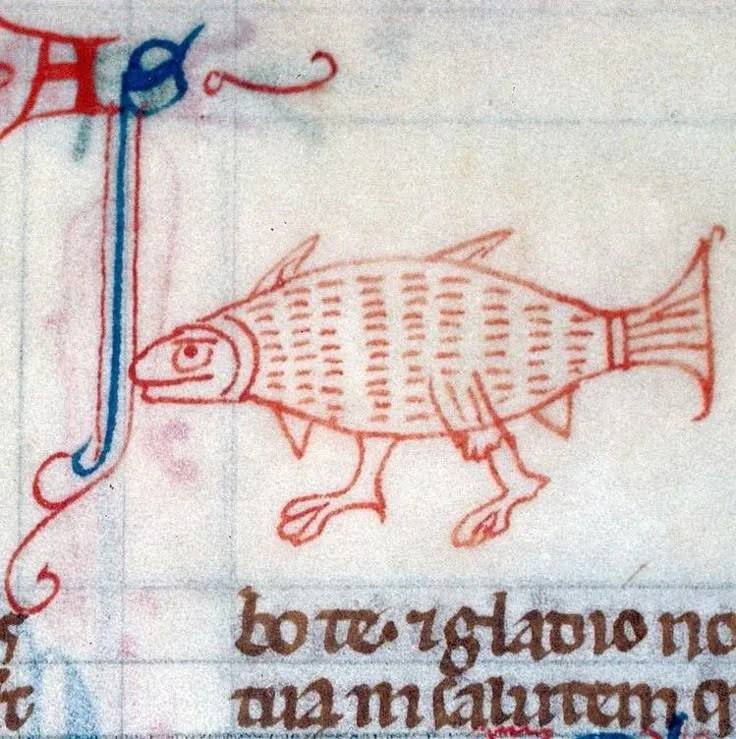 bo te· ⁊ gladio no
tua in salutem q